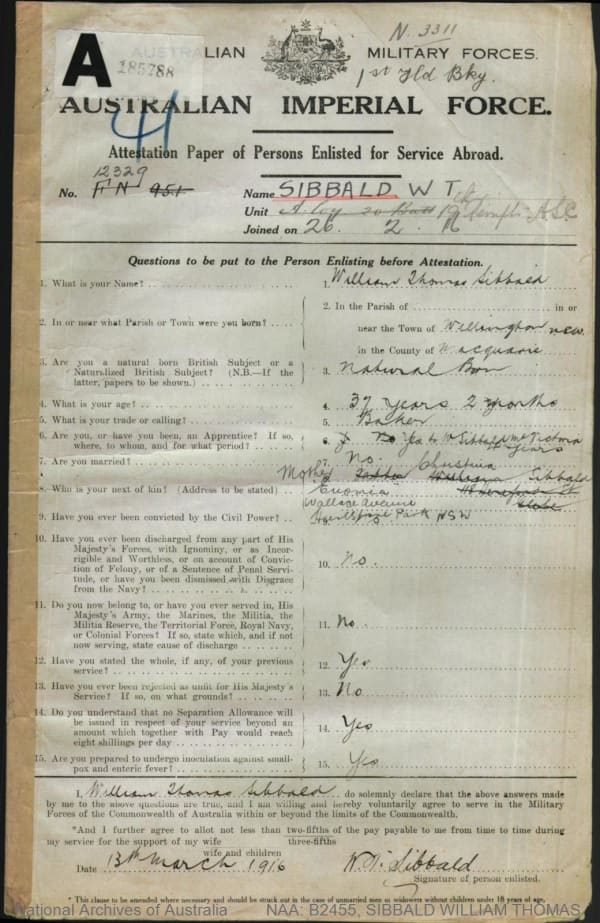 N. 3311
AUSTRALIAN MILITARY FORCES.
A
185288
1st Fld Bky.
AUSTRALIAN IMPERIAL FORCE.
Attestation Paper of Persons Enlisted for Service Abroad.
12329
No. FN 951
Name SIBBALD W T
Unit A Coy 20 Batt 19 A.S.C
Joined on 26. 2. 16
Questions to be put to the Person Enlisting before Attestation.
1. What is your Name? 1. William Thomas Sibbald
2. In or near what Parish or Town were you born? 2. In the Parish of in or
near the Town of Wellington NSW.
in the County of Macquarie
3. Are you a natural born British Subject or a
Naturalized British Subject? (N.B.—If the 3. Natural Born
latter, papers to be shown.)
4. What is your age? 4. 37 Years 2 Months
5. What is your trade or calling? 5. Baker
6. Are you, or have you been, an Apprentice? If so, 6. No Yes to W Sibbald Victoria
where, to whom, and for what period? Years
7. Are you married? 7. No.
Mother Christina Sibbald
8. Who is your next of kin? (Address to be stated)
Wallace Avenue
9. Have you ever been convicted by the Civil Power? Park NSW
10. Have you ever been discharged from any part of His
Majesty's Forces, with Ignominy, or as Incor-
rigible and Worthless, or on account of Convic-
tion of Felony, or of a Sentence of Penal Servi- 10. No.
tude, or have you been dismissed with Disgrace
from the Navy?
11. Do you now belong to, or have you ever served in, His
Majesty's Army, the Marines, the Militia, the
Militia Reserve, the Territorial Force, Royal Navy, 11. No.
or Colonial Forces? If so, state which, and if not
now serving, state cause of discharge
12. Have you stated the whole, if any, of your previous
service? 12. Yes
13. Have you ever been rejected as unfit for His Majesty's
Service? If so, on what grounds? 13. No
14. Do you understand that no Separation Allowance will
be issued in respect of your service beyond an
amount which together with Pay would reach 14. Yes
eight shillings per day
15. Are you prepared to undergo inoculation against small-
pox and enteric fever? 15. Yes
I, William Thomas Sibbald do solemnly declare that the above answers made
by me to the above questions are true, and I am willing and hereby voluntarily agree to serve in the Military
Forces of the Commonwealth of Australia within or beyond the limits of the Commonwealth.
*And I further agree to allot not less than two-fifths of the pay payable to me from time to time during
three-fifths
my service for the support of my wife
wife and children
Date 13th March 1916 W. T. Sibbald
Signature of person enlisted.
* This clause to be amended where necessary and should be struck out in the case of unmarried men or widowers without children under 18 years of age.
National Archives of Australia NAA: B2455, SIBBALD WILLIAM THOMAS